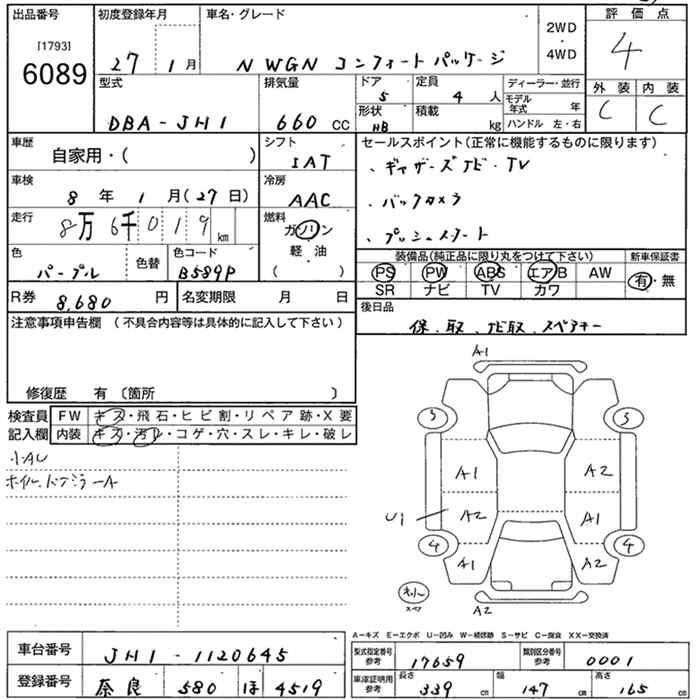 出品番号 初度登録年月 車名・グレード 評価点
[1793]
6089
27 1月 N WGN コンフォートパッケージ 2WD・4WD 4
型式 排気量 ドア 5 定員 4人 ディーラー・並行 外装 内装
モデル年式 年 C C
DBA-JH1 660 CC 形状 HB 積載 kg ハンドル 左・右
車歴 シフト セールスポイント(正常に機能するものに限ります)
自家用・( ) IAT 、ギャザーズナビ・TV
車検 冷房
8年 1月(27日) AAC 、バックカメラ
走行 燃料
8万6千019km ガソリン 、プッシュスタート
軽油
色 色替 色コード ( ) 装備品(純正品に限り丸をつけて下さい) 新車保証書
パープル B589P PS PW ABS エアB AW 有・無
R券 8,680円 名変期限 月 日 SR ナビ TV カワ
注意事項申告欄 (不具合内容等は具体的に記入して下さい) 後日品
保、取、ナビ取、スペアキー
修復歴 有 〔箇所 〕
検査員 FW キズ・飛石・ヒビ割・リペア跡・X要
記入欄 内装 キズ・汚レ・コゲ・穴・スレ・キレ・破レ
小AU
ホイル、ドアミラーA
A1
3 3
A1 A2
U1 A2 A1
4 4
A1 A2
A2
A−キズ E−エクボ U−凹み W−補修跡 S−サビ C−腐食 XX−交換済
車台番号 JH1-1120645 型式指定番号 参考 17659 類別区分番号 参考 0001
登録番号 奈良 580 ほ 4519 車庫証明用 参考 長さ 339cm 幅 147cm 高さ 165cm